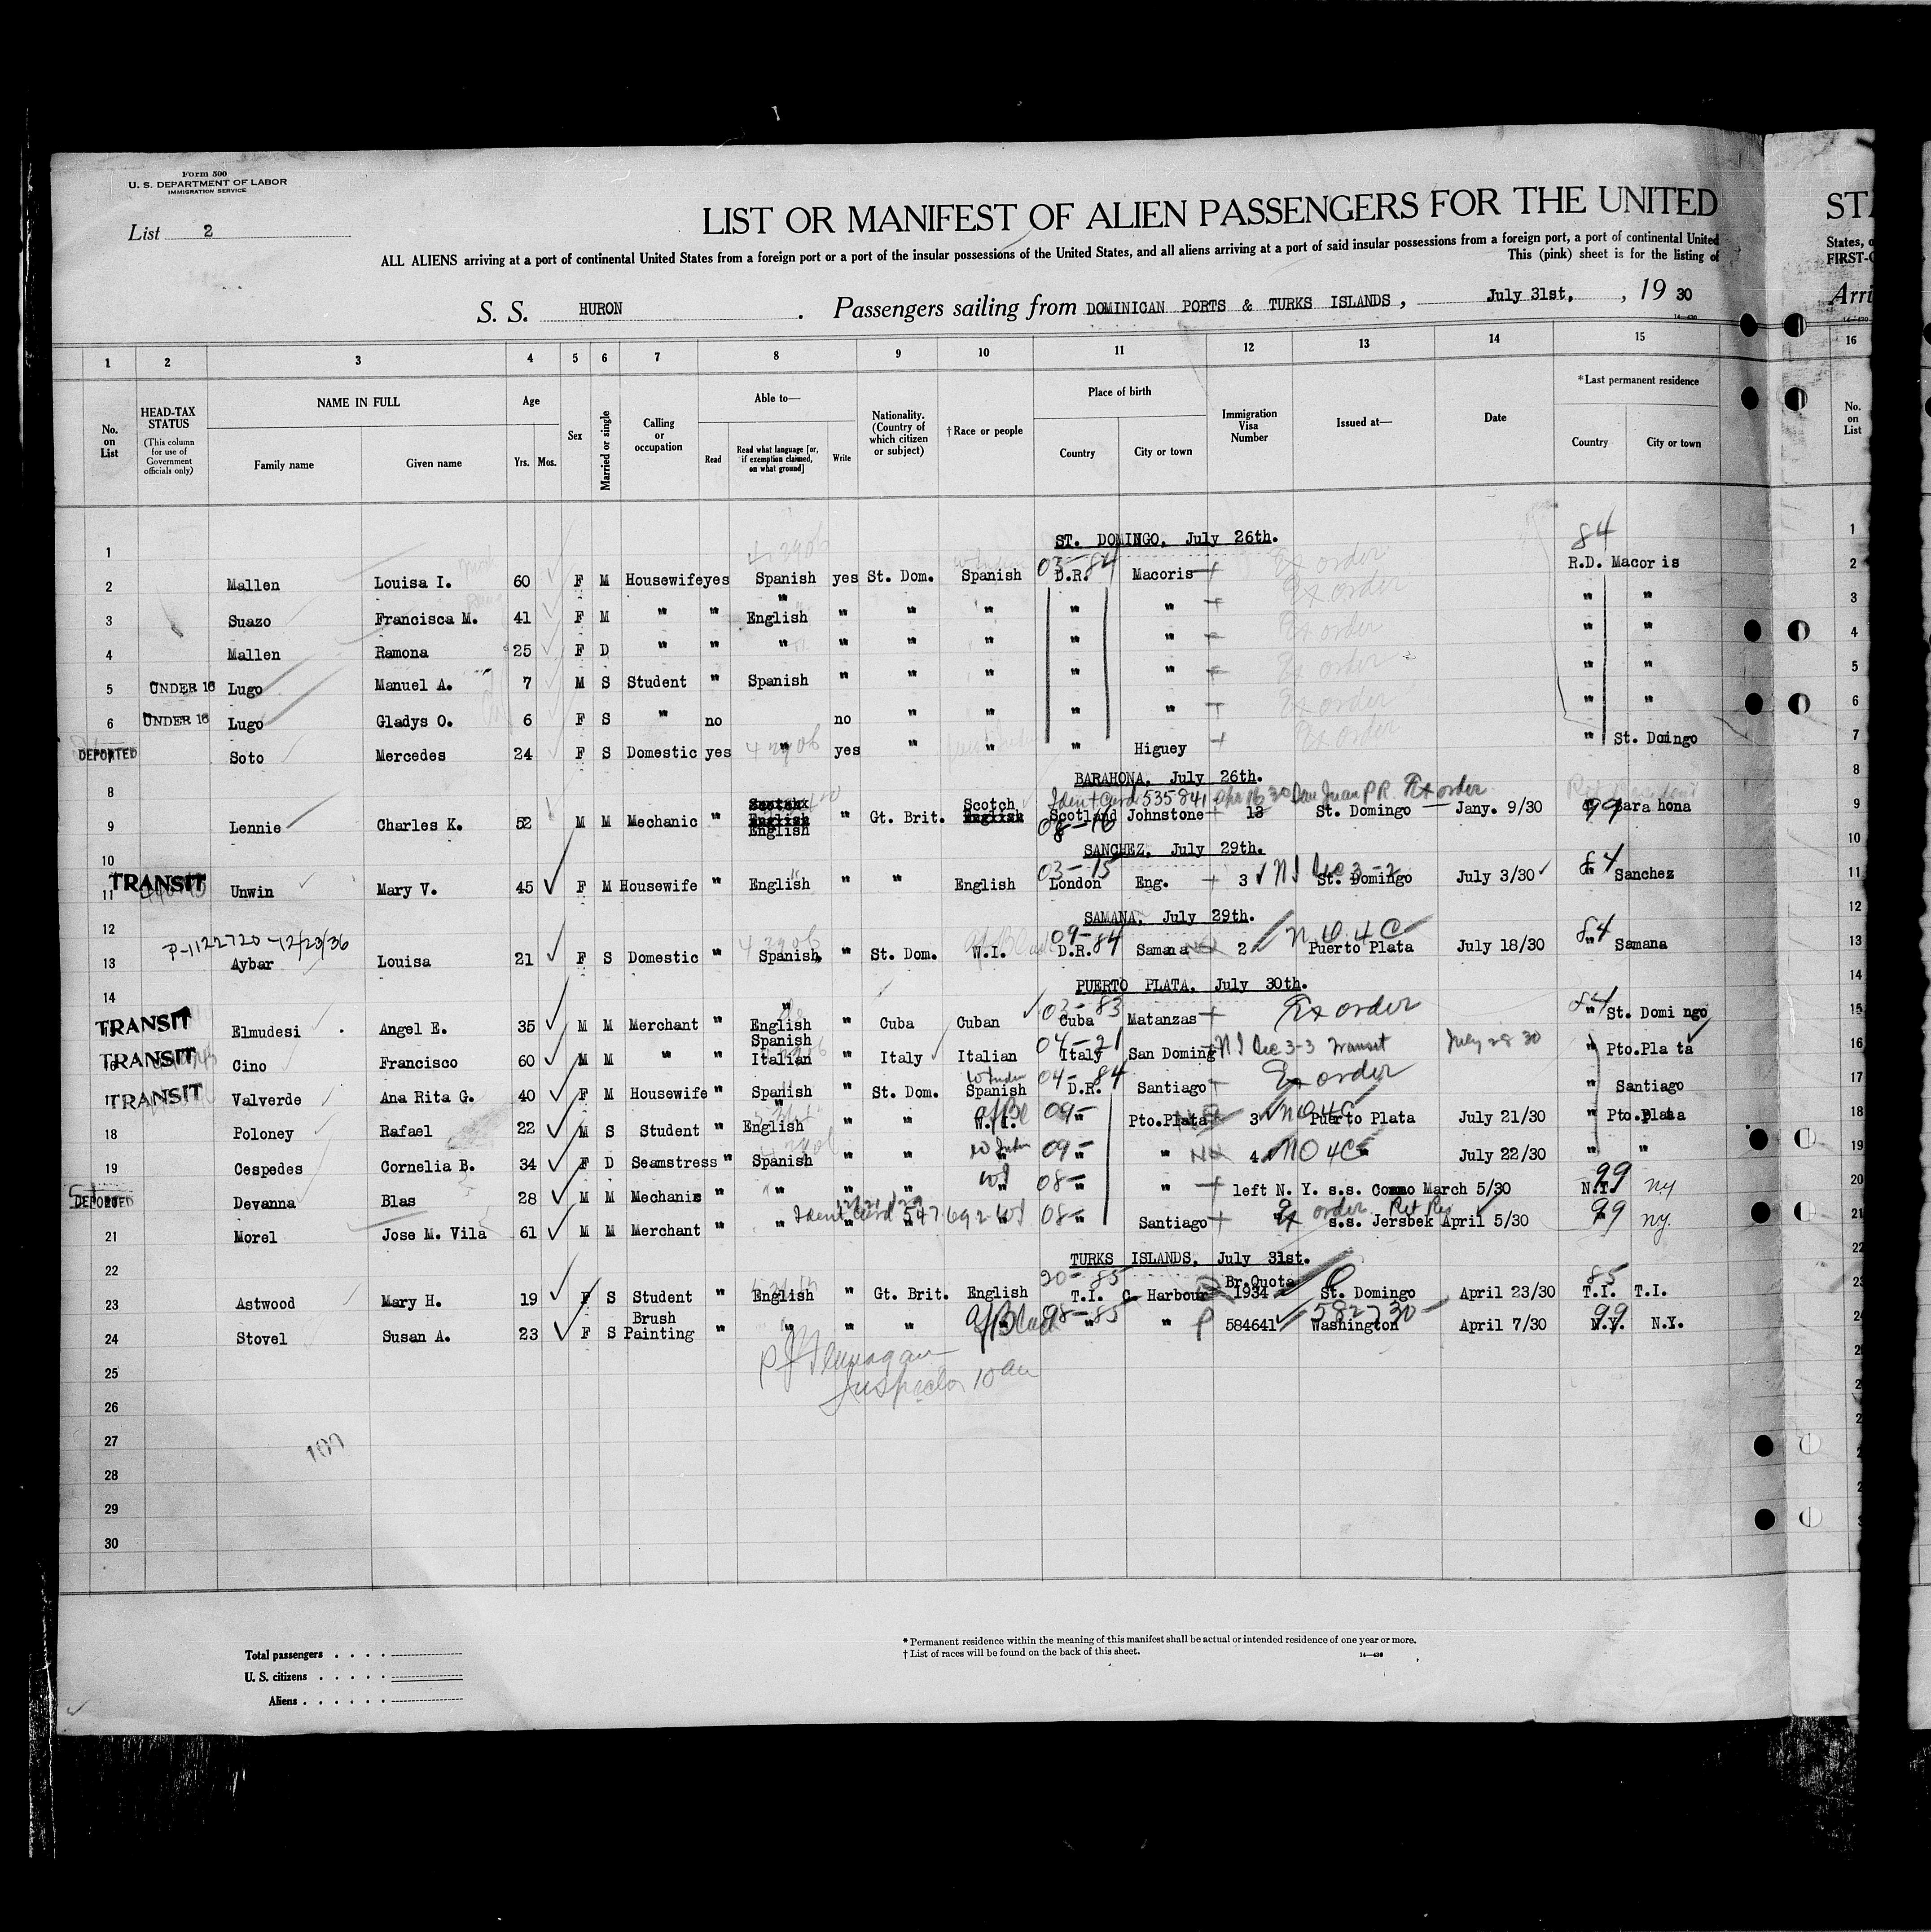 Form 500
U. S. DEPARTMENT OF LABOR
IMMIGRATION SERVICE
List 2
LIST OR MANIFEST OF ALIEN PASSENGERS FOR THE UNITED
STA
ALL ALIENS arriving at a port of continental United States from a foreign port or a port of the insular possessions of the United States, and all aliens arriving at a port of said insular possessions from a foreign port, a port of continental United
States, o
This (pink) sheet is for the listing of
FIRST-C
S. S. HURON . Passengers sailing from DOMINICAN PORTS & TURKS ISLANDS , July 31st, , 19 30
Arri
14—430
1 2 3 4 5 6 7 8 9 10 11 12 13 14 15 16
No. on List
HEAD-TAX STATUS (This column for use of Government officials only)
NAME IN FULL Family name Given name
Age Yrs. Mos.
Sex
Married or single
Calling or occupation
Able to— Read Read what language [or, if exemption claimed, on what ground] Write
Nationality. (Country of which citizen or subject)
† Race or people
Place of birth Country City or town
Immigration Visa Number
Issued at—
Date
*Last permanent residence Country City or town
No. on List
1 ST. DOMINGO, July 26th. 84 1
2 Mallen Louisa I. 60 F M Housewife yes Spanish yes St. Dom. Spanish 03-84 D.R. Macoris Ex order R.D. Macor is 2
3 Suazo Francisca M. 41 F M " " " English " " " " " Ex order " " 3
4 Mallen Ramona 25 F D " " " " " " " " Ex order " " 4
5 UNDER 16 Lugo Manuel A. 7 M S Student " Spanish " " " " " Ex order " " 5
6 UNDER 16 Lugo Gladys O. 6 F S " no no " " " " Ex order " " 6
DEPORTED Soto Mercedes 24 F S Domestic yes " yes " " " Higuey Ex order " St. Domingo 7
8 BARAHONA, July 26th. 8
Ident Card 535841 Apr 16 30 San Juan P.R. Ex order
9 Lennie Charles K. 52 M M Mechanic " English English " Gt. Brit. Scotch English Scotland 08-16 Johnstone 13 St. Domingo Jany. 9/30 99 Bara hona 9
10 SANCHEZ, July 29th. 10
TRANSIT 11 Unwin Mary V. 45 F M Housewife " English " " English 03-15 London Eng. 3 N I Sec 3-2 St. Domingo July 3/30 84 " Sanchez 11
12 SAMANA, July 29th. 12
P-1122720-12/23/36
13 Aybar Louisa 21 F S Domestic " Spanish, " St. Dom. W.I. 09-84 D.R. Samana NQ 2 N Q 4C Puerto Plata July 18/30 84 " Samana 13
14 PUERTO PLATA, July 30th. 14
TRANSIT Elmudesi Angel E. 35 M M Merchant " " English " Cuba Cuban 03-83 Cuba Matanzas Ex order 84 " St. Domi ngo 15
TRANSIT Cino Francisco 60 M M " " Spanish Italian " Italy Italian 04-21 Italy San Doming N I Sec 3-3 Transit July 28 30 " Pto.Pla ta 16
TRANSIT Valverde Ana Rita G. 40 F M Housewife " Spanish " St. Dom. Spanish 04-84 D.R. Santiago Ex order " Santiago 17
18 Poloney Rafael 22 M S Student " " English " " W.I. Af Bl 09- " Pto.Plata 3 NQ4C Puerto Plata July 21/30 " Pto.Plata 18
19 Cespedes Cornelia B. 34 F D Seamstress " Spanish " " " 09- " " NQ 4 NQ4C " July 22/30 " " 19
DEPORTED Devanna Blas 28 M M Mechanic " " " " " WI 08- " " left N. Y. s.s. Coamo March 5/30 99 N.Y. NY 20
Ident Card 547692 WI
21 Morel Jose M. Vila 61 M M Merchant " " " " 08- " Santiago Ex order Ret Res " s.s. Jersbek April 5/30 99 " NY. 21
22 TURKS ISLANDS, July 31st. 22
23 Astwood Mary H. 19 F S Student " English " Gt. Brit. English 20-85 T.I. C. Harbour Br.Quota 1934 St. Domingo April 23/30 85 T.I. T.I. 23
24 Stovel Susan A. 23 F S Brush Painting " " " " " Af Black 98-85 " " P 584641 582730 Washington April 7/30 99 N.Y. N.Y. 24
Inspector 10 am
25
26
27
28
29
30
107
Total passengers . . . .
U. S. citizens . . . . .
Aliens . . . . . .
* Permanent residence within the meaning of this manifest shall be actual or intended residence of one year or more.
† List of races will be found on the back of this sheet.
14—430